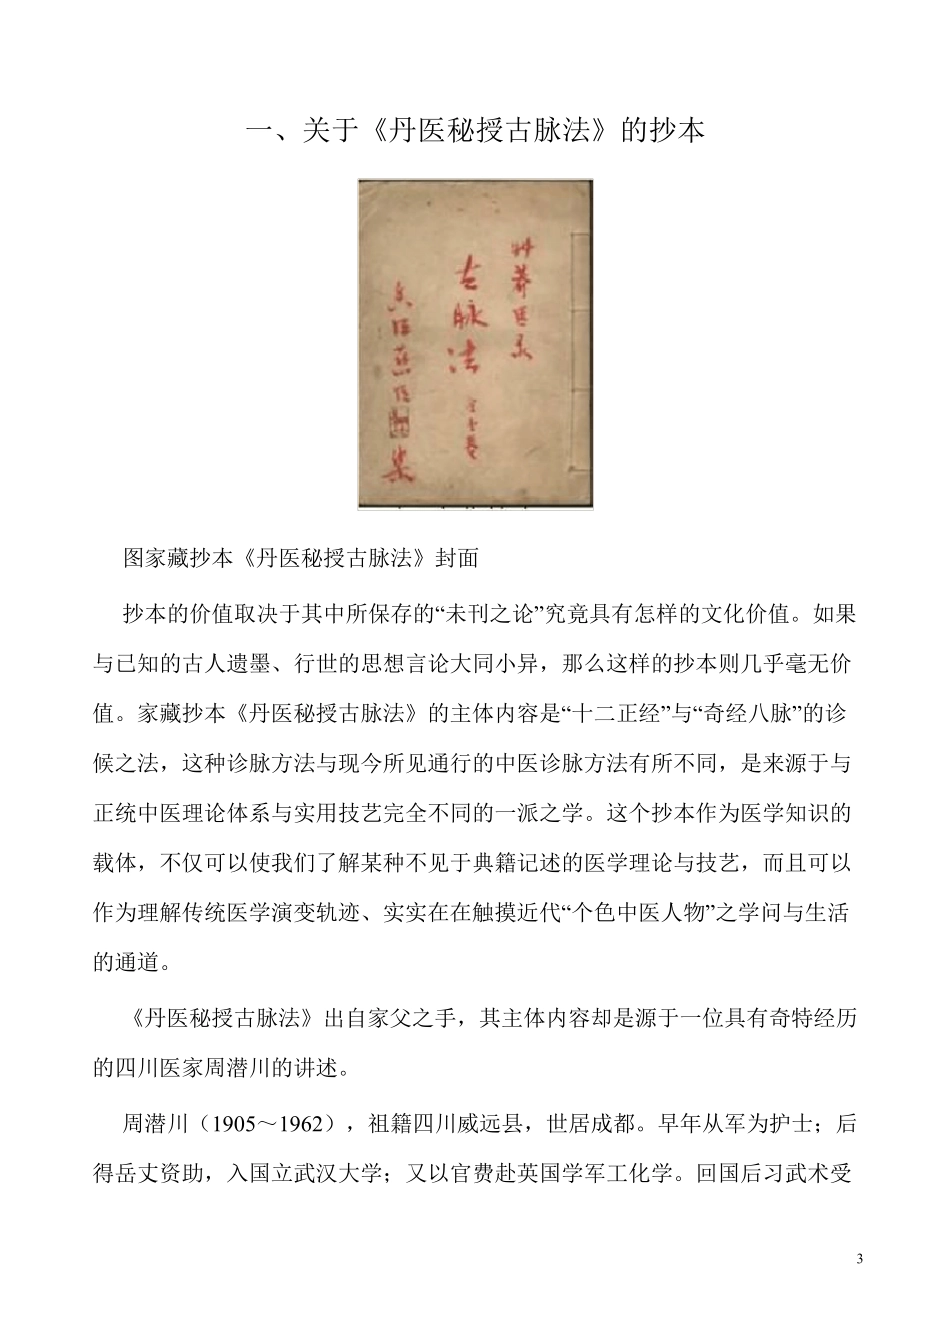 一、关于《丹医秘授古脉法》的抄本
草莽医录
古脉法
图家藏抄本《丹医秘授古脉法》封面
抄本的价值取决于其中所保存的“未刊之论”究竟具有怎样的文化价值。如果
与已知的古人遗墨、行世的思想言论大同小异，那么这样的抄本则几乎毫无价
值。家藏抄本《丹医秘授古脉法》的主体内容是“十二正经”与“奇经八脉”的诊
候之法，这种诊脉方法与现今所见通行的中医诊脉方法有所不同，是来源于与
正统中医理论体系与实用技艺完全不同的一派之学。这个抄本作为医学知识的
载体，不仅可以使我们了解某种不见于典籍记述的医学理论与技艺，而且可以
作为理解传统医学演变轨迹、实实在在触摸近代“个色中医人物”之学问与生活
的通道。
《丹医秘授古脉法》出自家父之手，其主体内容却是源于一位具有奇特经历
的四川医家周潜川的讲述。
周潜川（1905～1962），祖籍四川威远县，世居成都。早年从军为护士；后
得岳丈资助，入国立武汉大学；又以官费赴英国学军工化学。回国后习武术受
3